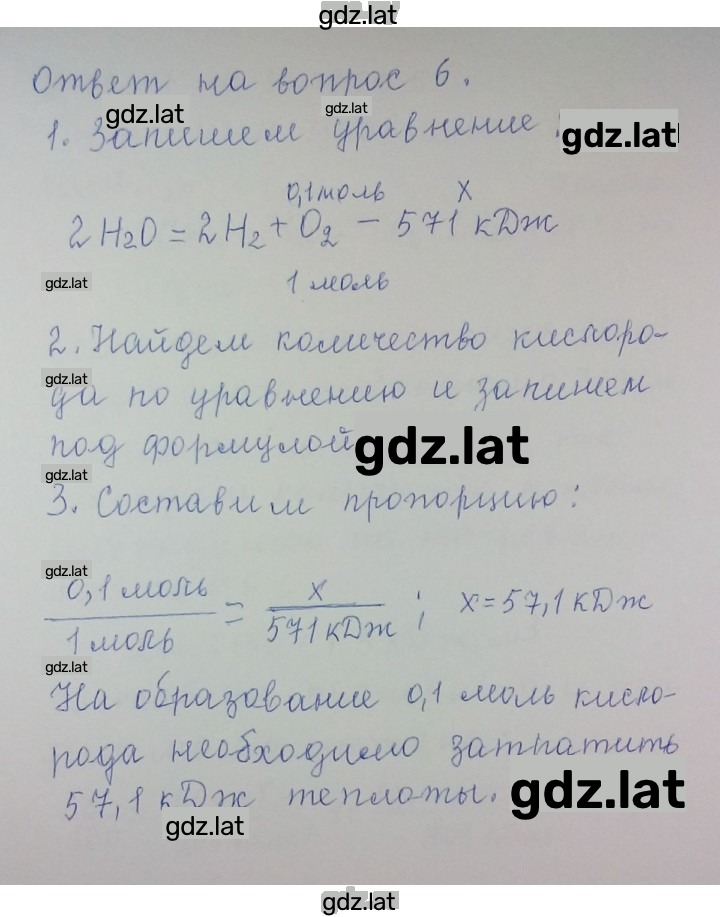 gdz.lat
Ответ на вопрос 6.
gdz.lat
gdz.lat
1. Запишем уравнение:
gdz.lat
0,1 моль х
2H₂O = 2H₂ + O₂ - 571 кДж
gdz.lat
1 моль
2. Найдем количество кислоро-
gdz.lat
да по уравнению и запишем
под формулой
gdz.lat
gdz.lat
3. Составим пропорцию:
gdz.lat
0,1 моль / 1 моль = х / 571 кДж ; х = 57,1 кДж
gdz.lat
На образование 0,1 моль кисло-
рода необходимо затратить
57,1 кДж теплоты.
gdz.lat
gdz.lat
gdz.lat